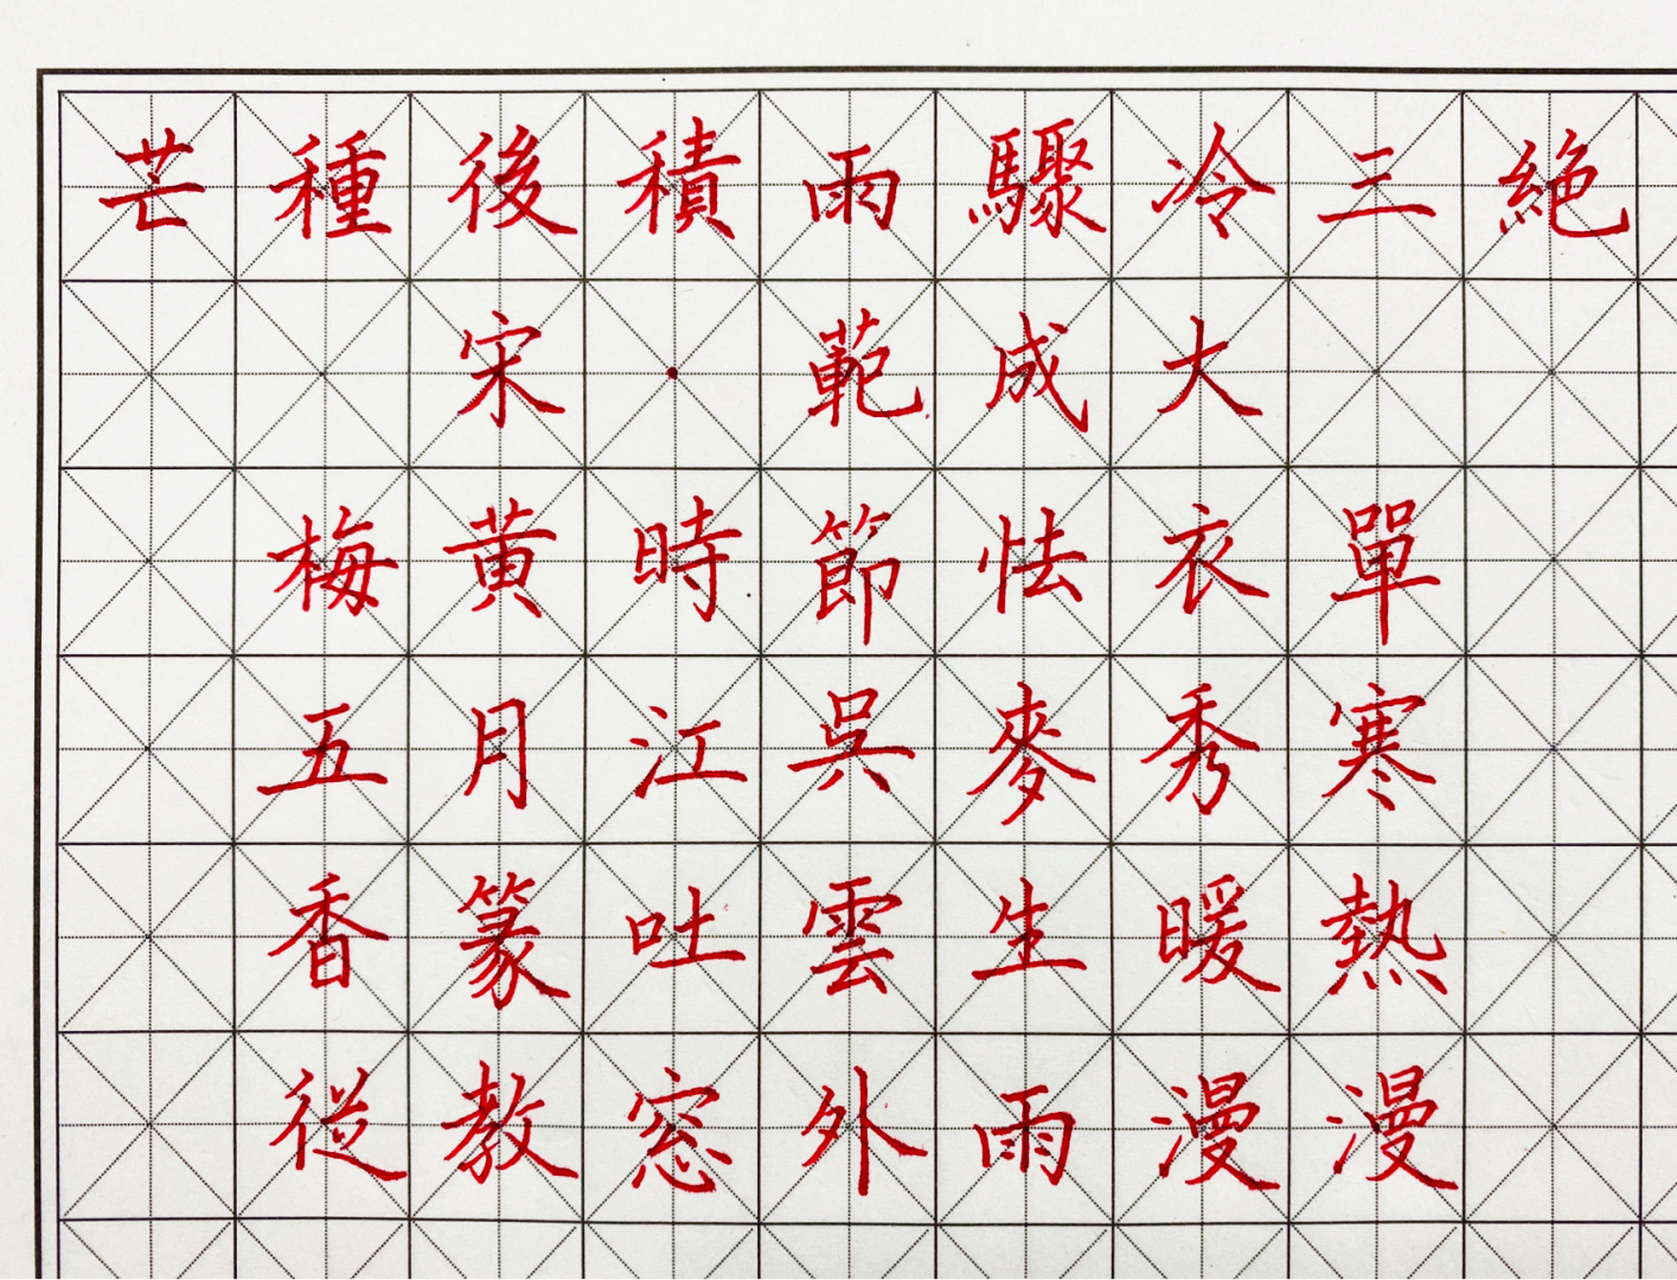 芒種後積雨驟冷三絶
宋·範成大
梅黄時節怯衣單
五月江吳麥秀寒
香篆吐雲生暖熱
從教窓外雨漫漫